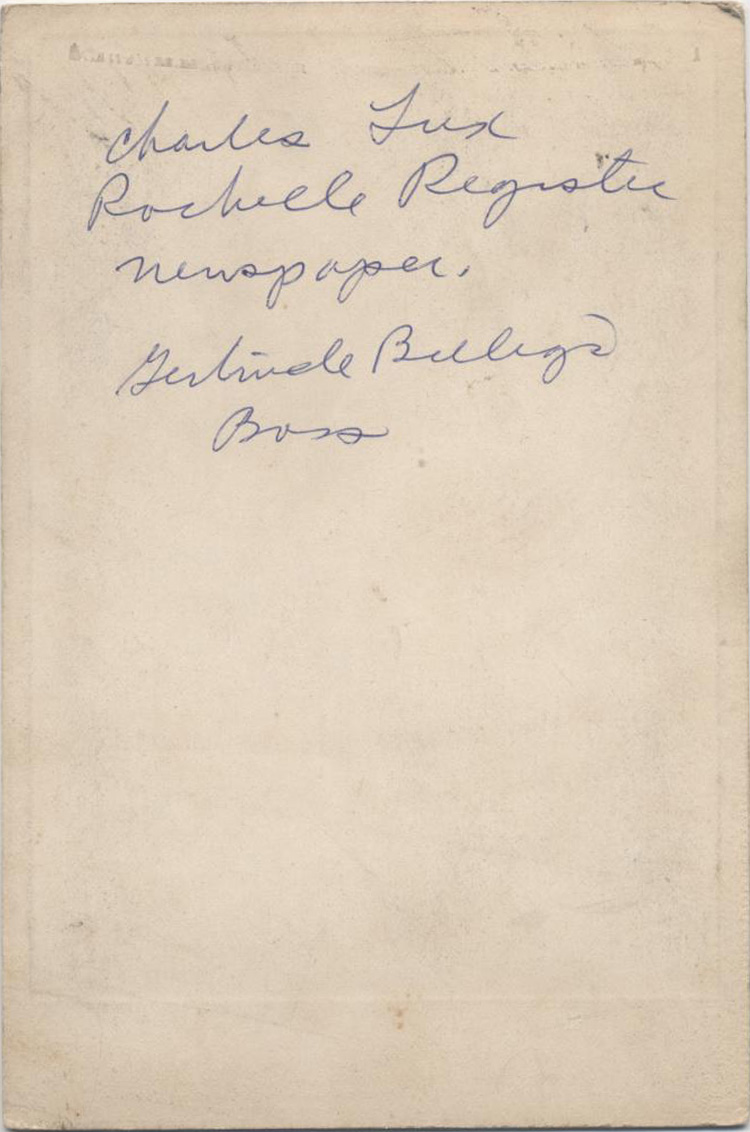 Charles Lux
Rochelle Register
newspaper.
Gertrude Billig's
Boss